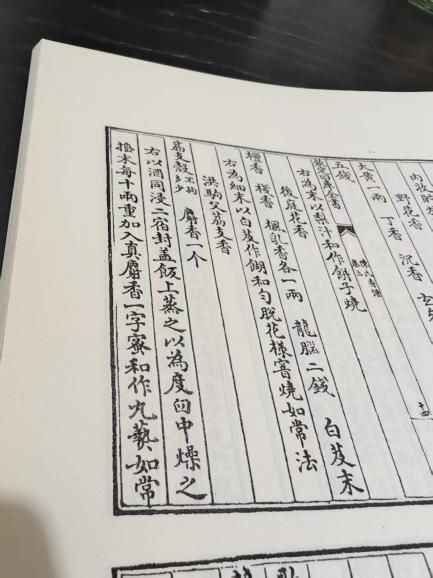 內收貯
野花香
大黃一兩 丁香 沉香
五錢
右為末以梨汁和作餅子燒
欽定四庫全書 陳氏香譜
後庭花香
檀香 棧香 楓乳香各一兩 龍腦二錢 白芨末
右為細末以白芨作餬和勻脫花樣窨燒如常法
洪駒父荔支香
荔支殼不拘多少 麝香一个
右以酒同浸二宿封盖飯上蒸之以為度臼中燥之
擣末每十兩重加入真麝香一字蜜和作丸爇如常